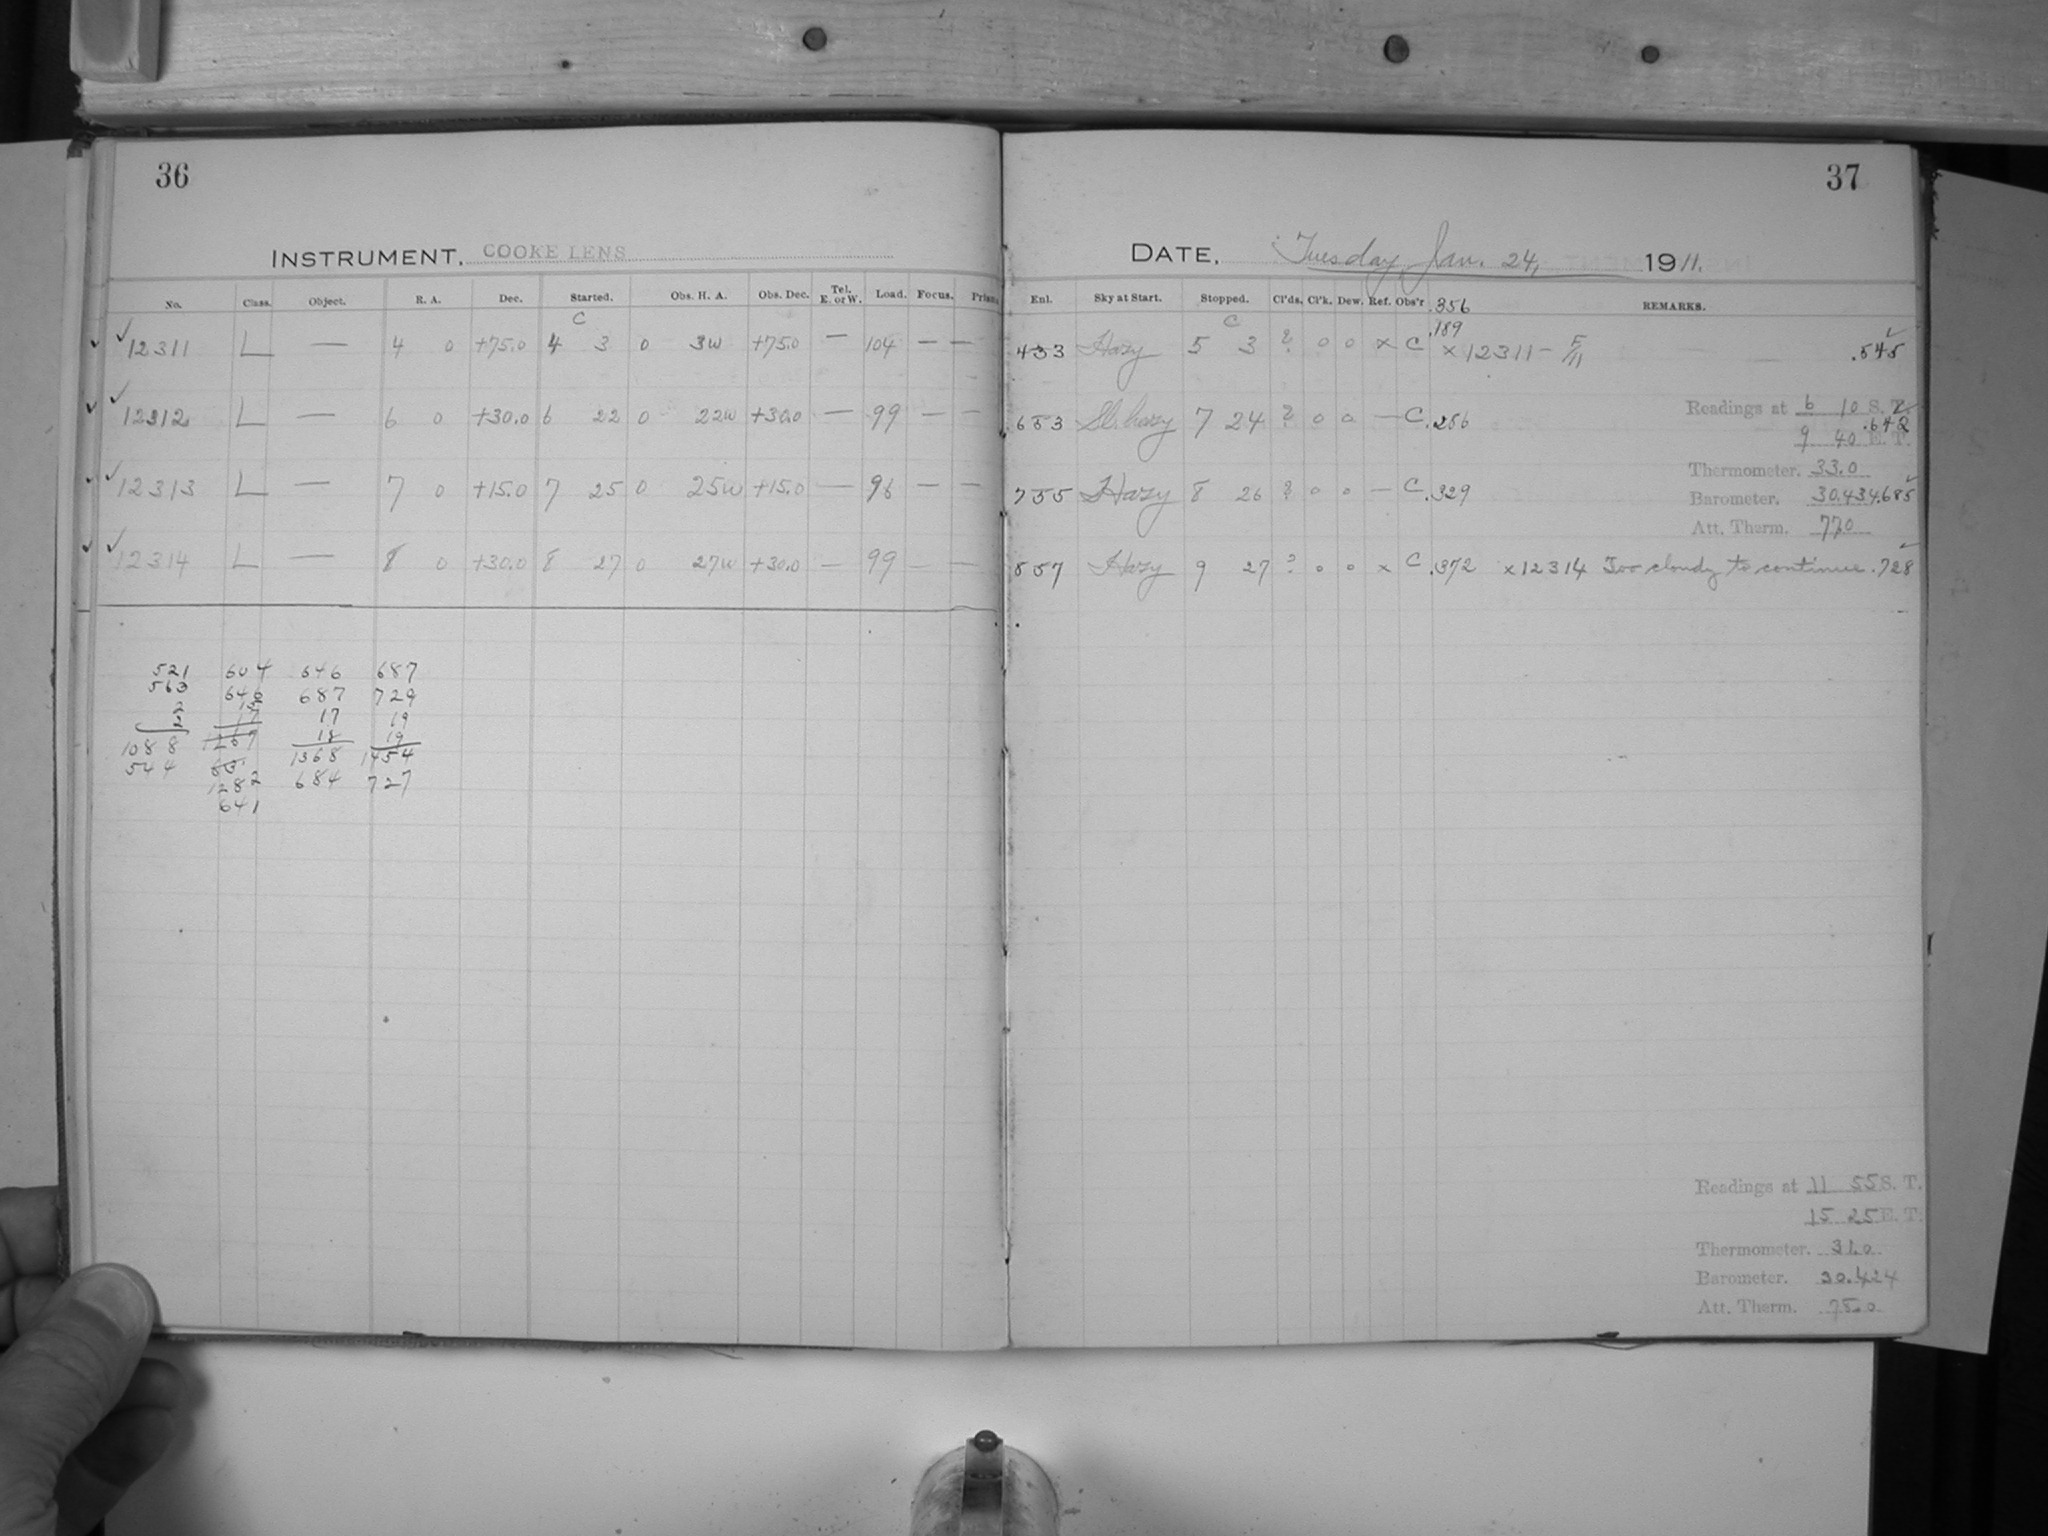 36
INSTRUMENT. COOKE LENS
No. Class. Object. R. A. Dec. Started. Obs. H. A. Obs. Dec. Tel. E. or W. Load. Focus. Prism
C
✓ ✓ 12311 L — 4 0 +75.0 4 3 0 3w +75.0 — 104 — —
✓ ✓ 12312 L — 6 0 +30.0 6 22 0 22w +30.0 — 99 — —
✓ ✓ 12313 L — 7 0 +15.0 7 25 0 25w +15.0 — 96 — —
✓ ✓ 12314 L — 8 0 +30.0 8 27 0 27w +30.0 — 99 — —
521 604 646 687
563 646 687 729
2 17 19
2 18 19
1088 1267 1368 1454
544 684 727
1282
641
37
DATE. Tuesday Jan. 24, 1911.
Enl. Sky at Start. Stopped. Cl'ds. Cl'k. Dew. Ref. Obs'r .356 REMARKS.
C .189
433 Hazy 5 3 ? 0 0 × C × 12311 - F/11 .545
Readings at 6 10 S. T.
653 Sl. hazy 7 24 ? 0 0 — C .286 .642
9 40 E. T.
Thermometer. 33.0
755 Hazy 8 26 ? 0 0 — C .329 .685
Barometer. 30.434
Att. Therm. 77.0
857 Hazy 9 27 ? 0 0 × C .372 × 12314 Too cloudy to continue .728
Readings at 11 55 S. T.
15 25 E. T.
Thermometer. 31.0
Barometer. 30.424
Att. Therm. 75.0